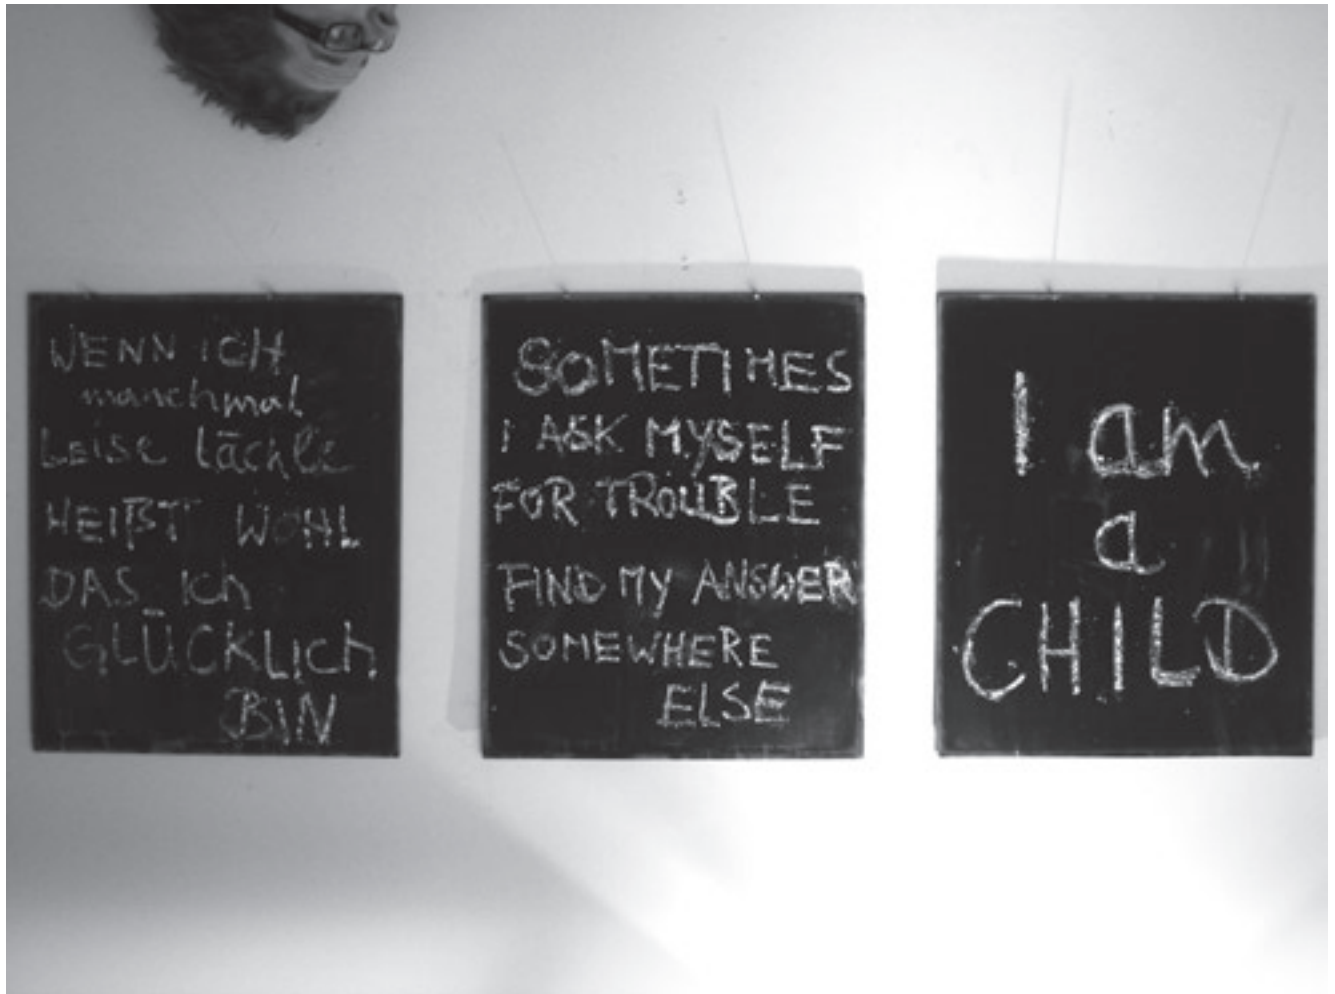 WENN ICH
manchmal
Leise lächle
HEIßT WOHL
DAS ICH
GLÜCKLICh
BIN
SOMETIMES
I ASK MYSELF
FOR TROUBLE
FIND MY ANSWER
SOMEWHERE
ELSE
I am
a
CHILD